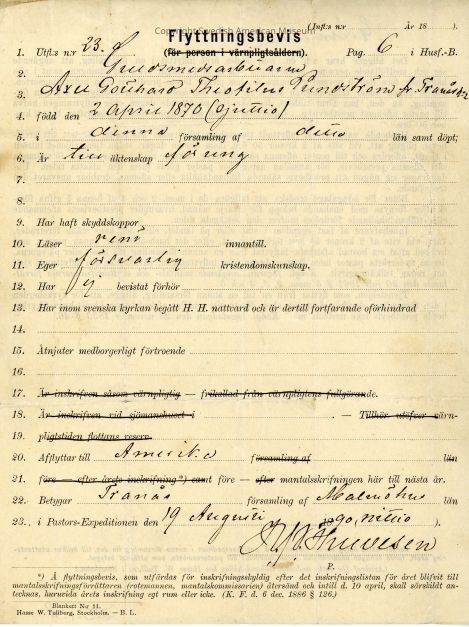 Copyright Swedish American Museum
(Inft:s n:r År 18 ).
Flyttningsbevis
1. Utfl:s n:r 23. (för person i värnpligtsåldern). Pag. 6 i Husf.-B.
2.
3. Axel Gotthard Theofilus Lundström fr. Tranås
4. född den 2 April 1870 (sjuttio)
5. i denna församling af detta län samt döpt;
6. Är till äktenskap
7.
8.
9. Har haft skyddskoppor
10. Läser rent innantill.
11. Eger försvarlig kristendomskunskap.
12. Har ej bevistat förhör
13. Har inom svenska kyrkan begått H. H. nattvard och är dertill fortfarande oförhindrad
14.
15. Åtnjuter medborgerligt förtroende
16.
17. Är inskrifven såsom värnpligtig — frikallad från värnpligtens fullgörande.
18. Är inskrifven vid sjömanshuset i . — Tillhör utöfver värn-
19. pligtstiden flottans reserv.
20. Afflyttar till Amerika församling af län
21. före — efter årets inskrifning*) samt före — efter mantalsskrifningen här till nästa år.
22. Betygar Tranås församling af Malmöhus län
23., i Pastors-Expeditionen den 19 Augusti 1890, nittio ).
P.
*) Å flyttningsbevis, som utfärdas för inskrifningsskyldig efter det inskrifningslistan för året blifvit till
mantalsskrifningsförrättaren (rotemannen, mantalskommissarien) återsänd och intill d. 10 april, skall särskildt an-
tecknas, huruvida årets inskrifning egt rum eller icke. (K. F. d. 6 dec. 1886 § 126.)
Blankett N:o 11.
Hasse W. Tullberg, Stockholm. — B. L.